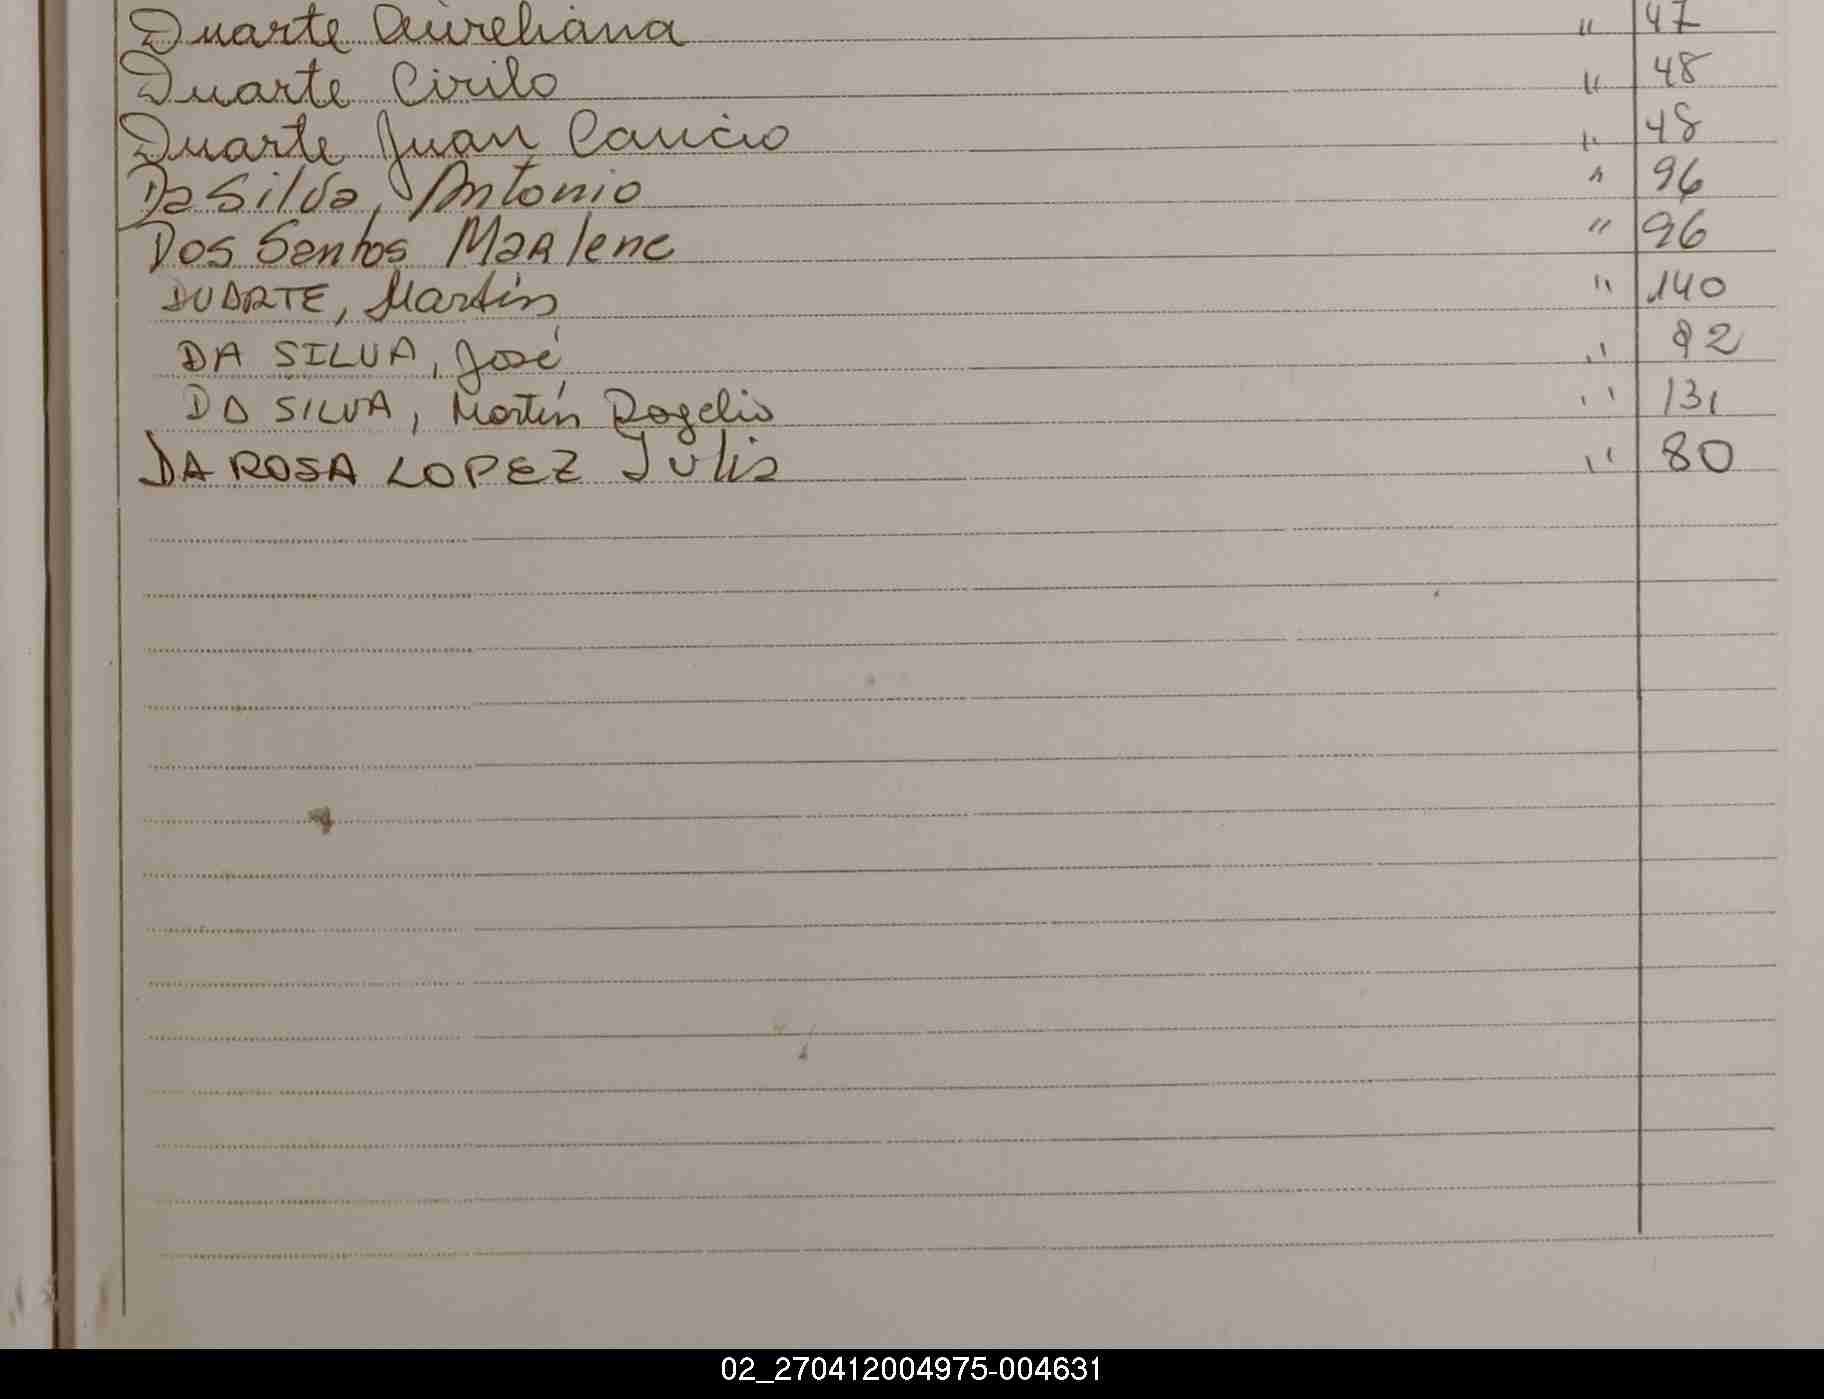 Duarte Aureliana " 47
Duarte Cirilo " 48
Duarte Juan Cancio " 48
Da Silva, Antonio " 96
Dos Santos Marlene " 96
DUARTE, Martín " 140
DA SILVA, José " 92
DA SILVA, Martín Rogelio " 131
DA ROSA LOPEZ Julia " 80
02_270412004975-004631